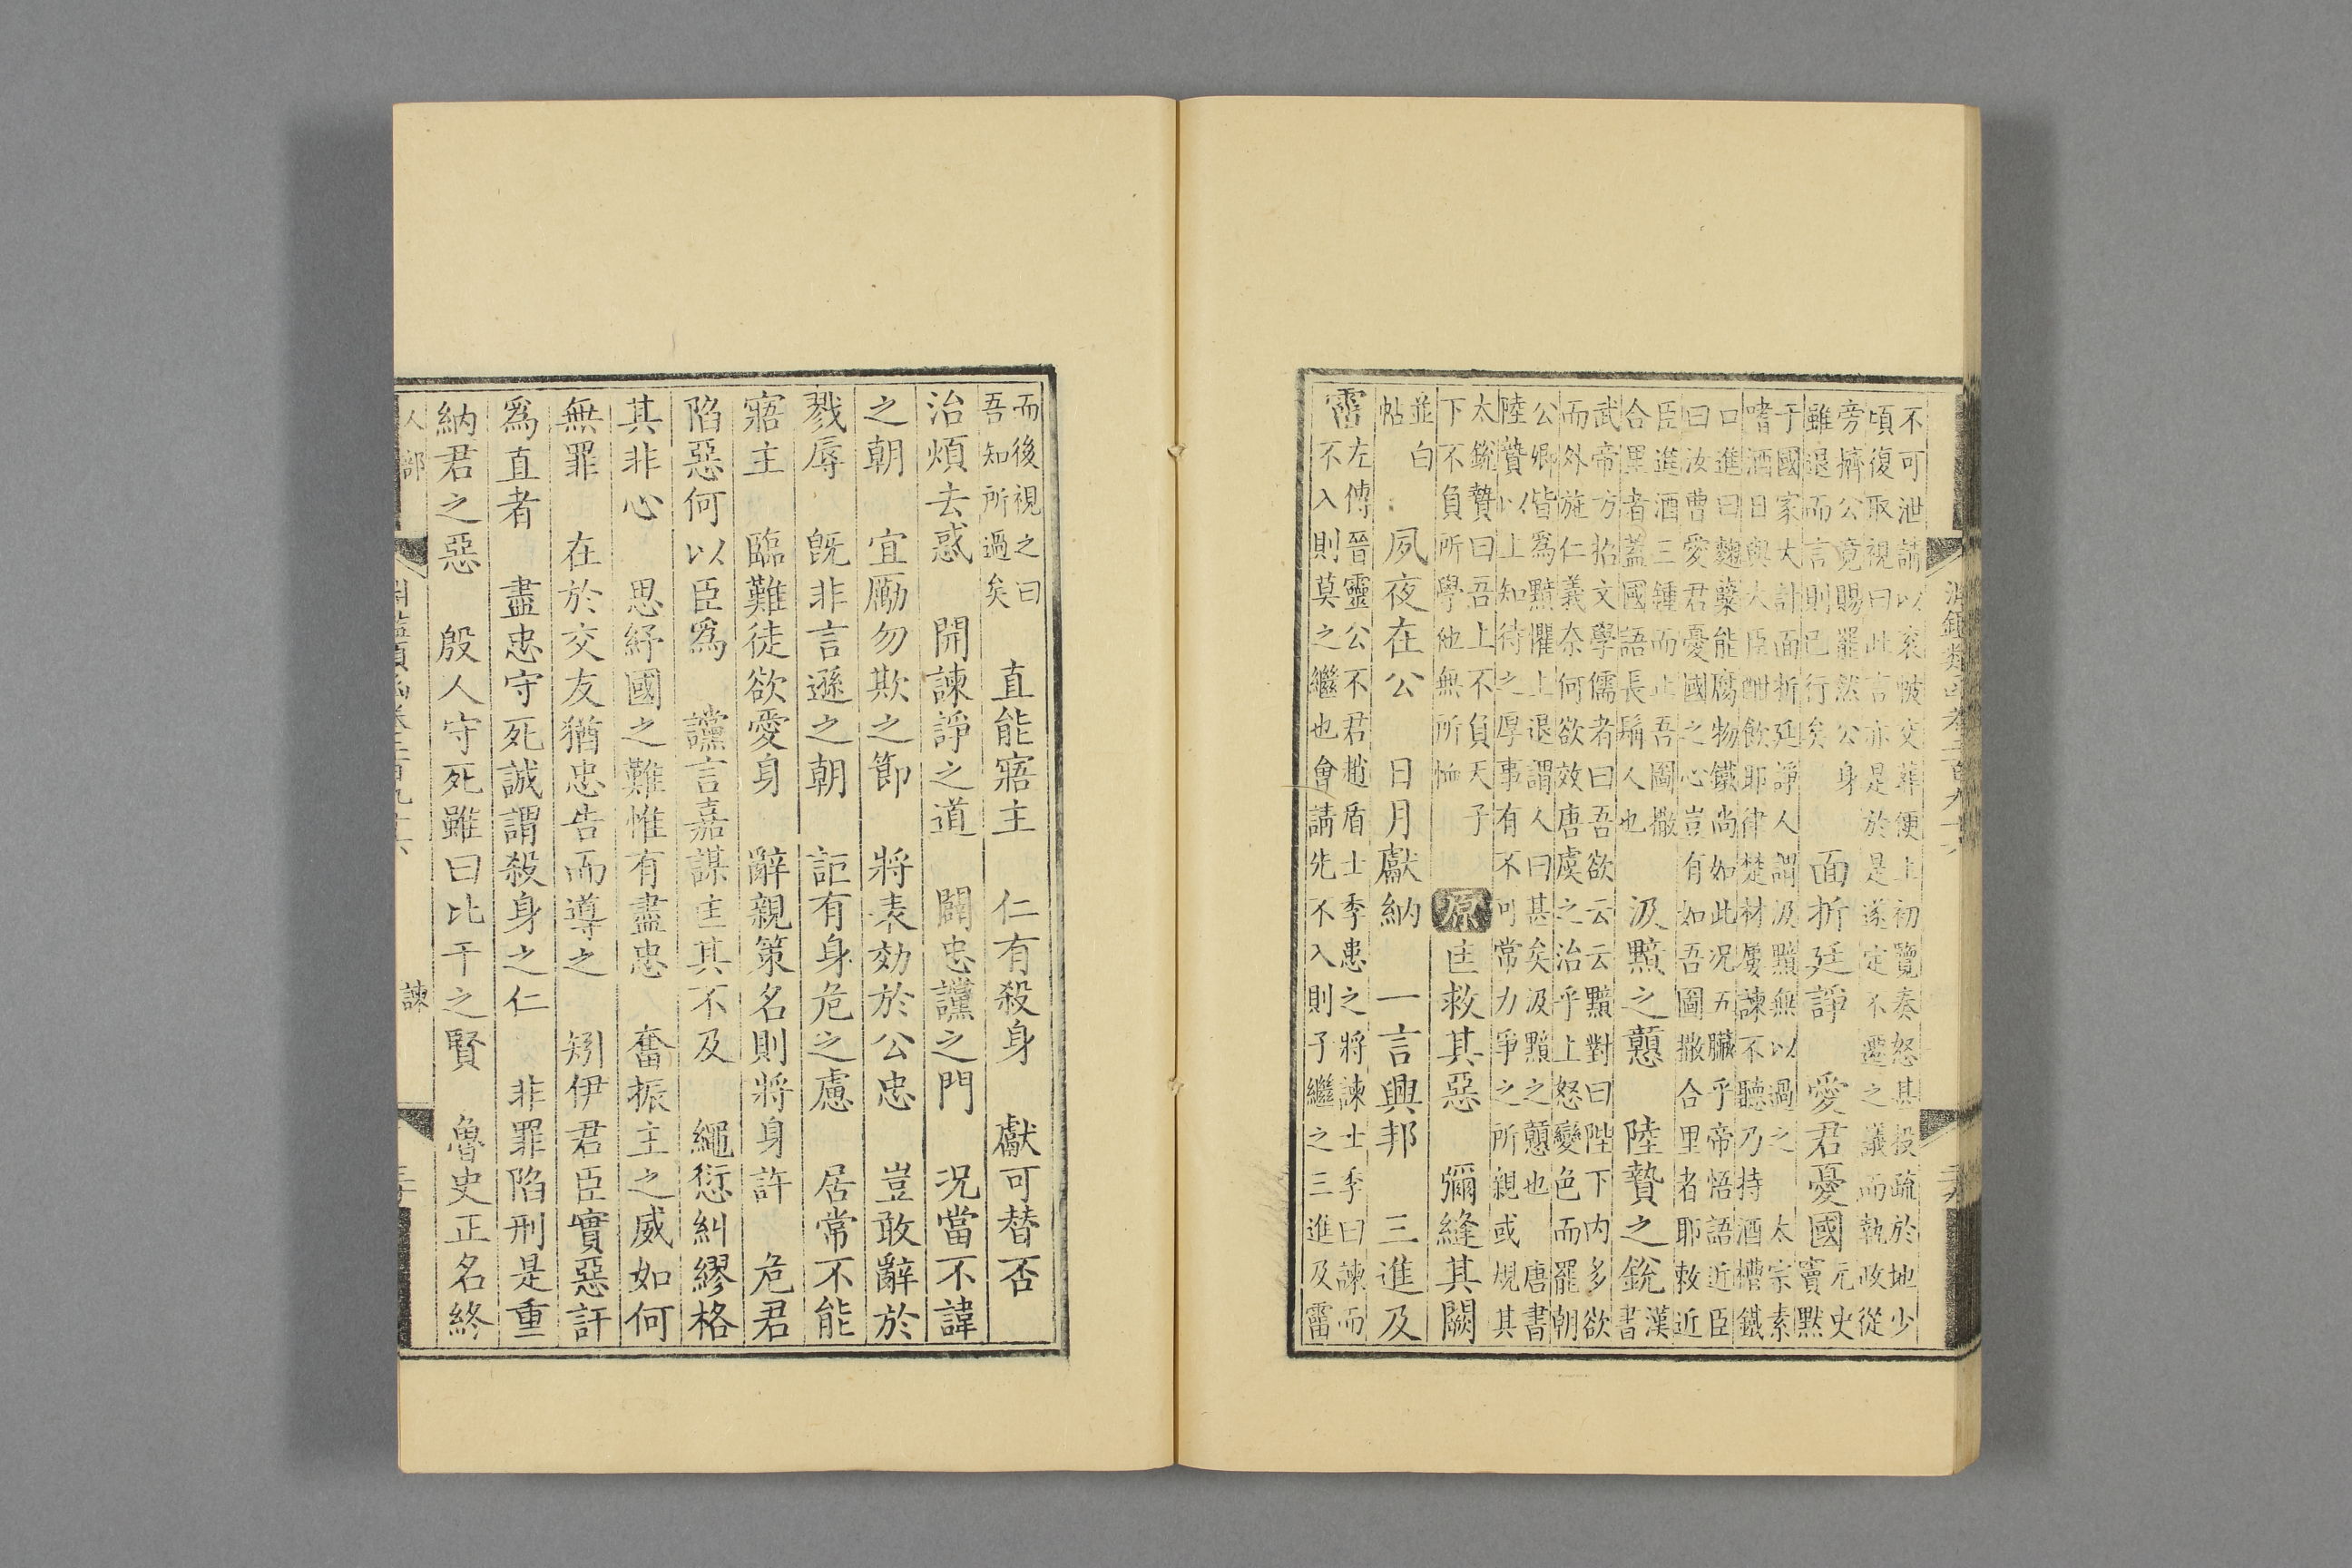 不可泄請以哀帔交葬便上初覽奏怒甚投疏於地少
頃復取視曰此言亦是於是遂定不遷之議而執政從
旁擠公竟賜罷然公身
雖退而言則已行矣
面折廷諍 愛君憂國
元史
竇默
于國家大計面折廷諍人謂汲黯無以過之 太宗素
嗜酒日與大臣酣飲耶律楚材屢諫不聽乃持酒槽鐵
口進曰麴蘖能腐物鐵尚如此况五臟乎帝悟語近臣
曰汝曹愛君憂國之心豈有如吾圖撒合里者耶敕近
臣進酒三鍾而止吾圖撒
合里者蓋國語長髯人也
汲黯之戇 陸贄之銳
漢
書
武帝方招文學儒者曰吾欲云云黯對曰陛下内多欲
而外施仁義奈何欲效唐虞之治乎上怒變色而罷朝
公卿皆爲黯懼上退謂人曰甚矣汲黯之戇也 唐書
陸贄以上知待之厚事有不可常力爭之所親或規其
太銳贄曰吾上不負天子
下不負所學他無所恤
原 匡救其惡 彌縫其闕
並白
帖
夙夜在公 日月獻納 一言興邦 三進及
霤
左傅晉靈公不君趙盾士季患之將諫士季曰諫而
不入則莫之繼也會請先不入則子繼之三進及霤
淵鑑類函卷二百九十六
而後視之曰
吾知所過矣
直能寤主 仁有殺身 獻可替否
治煩去惑 開諫諍之道 闢忠讜之門 況當不諱
之朝 宜勵勿欺之節 將表効於公忠 豈敢辭於
戮辱 旣非言遜之朝 詎有身危之慮 居常不能
寤主 臨難徒欲愛身 辭親策名則將身許 危君
陷惡何以臣爲 讜言嘉謀匡其不及 繩愆糾繆格
其非心 思紓國之難惟有盡忠 奮振主之威如何
無罪 在於交友猶忠告而導之 矧伊君臣實惡訐
爲直者 盡忠守死誠謂殺身之仁 非罪陷刑是重
納君之惡 殷人守死雖曰比干之賢 魯史正名終
人部 諫